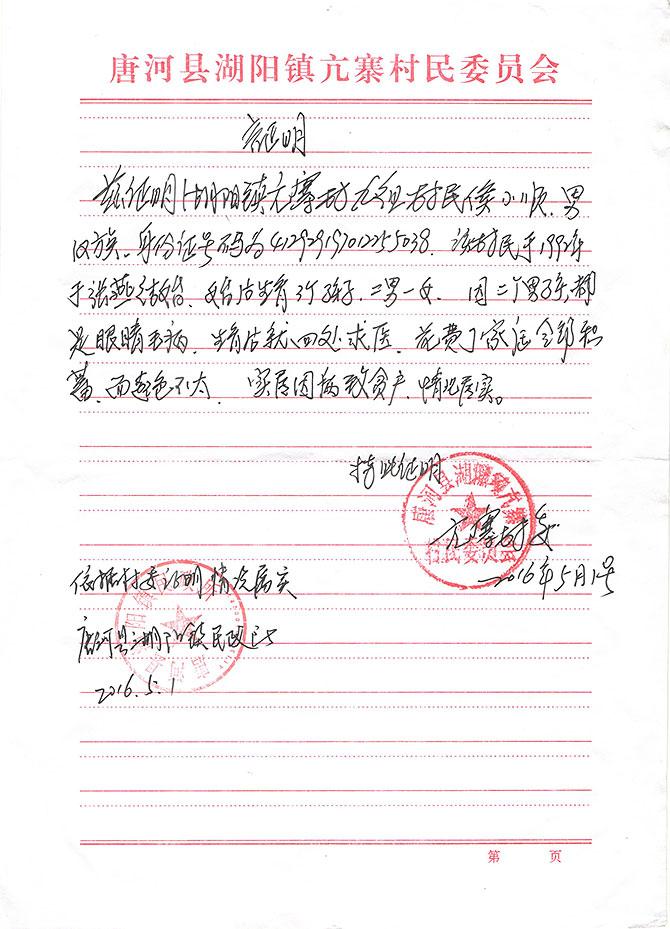 唐河县湖阳镇亢寨村民委员会
证明
兹证明湖阳镇亢寨村 组村民侯小顺.男
汉族.身份证号码为412929197012255038.该村民于1992年
于张燕结婚.婚后生育3个孩子.二男一女.因二个男孩都
是眼睛毛病.生育后就四处求医.花费了家庭全部积
蓄.而起色不大.实属因病致贫户.情况属实。
特此证明
唐河县湖阳镇亢寨
村民委员会
亢寨村委
2016年5月1号
依据村委证明情况属实
唐河县湖阳镇民政所
2016.5.1
第 页